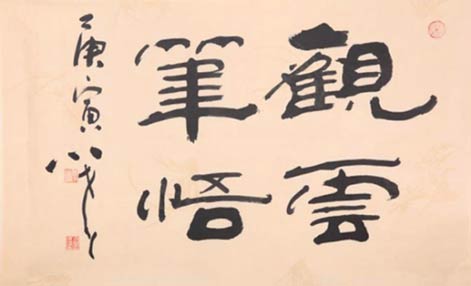 觀雲
筆悟
庚寅